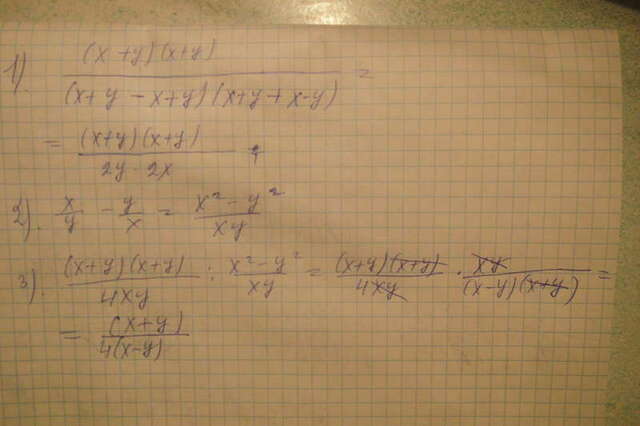 1). (x+y)(x+y) / (x+y-x+y)(x+y+x-y) =
= (x+y)(x+y) / 2y·2x
2). x/y - y/x = x²-y² / xy
3). (x+y)(x+y) / 4xy : x²-y² / xy = (x+y)(x+y) / 4xy · xy / (x-y)(x+y) =
= (x+y) / 4(x-y)